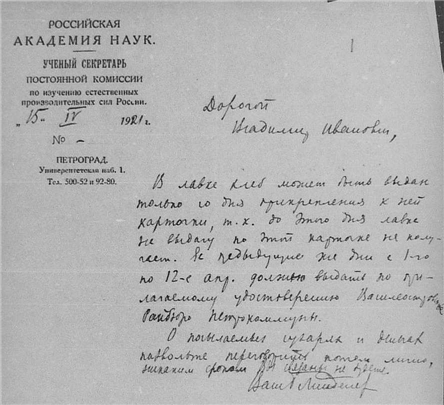 РОССИЙСКАЯ
АКАДЕМИЯ НАУК.
УЧЕНЫЙ СЕКРЕТАРЬ
ПОСТОЯННОЙ КОМИССИИ
по изучению естественных
производительных сил России.
„15" IV 1921 г.
№ –
ПЕТРОГРАД.
Университетская наб. 1.
Тел. 500-52 и 92-80.
Дорогой
Владимир Иванович,
В лавке хлеб может быть выдан
только со дня прикрепления к ней
карточки, т.к. до этого дня лавке
не выдачу по этой карточке не полу-
чает. За предыдущие же дни с 1-го
по 12-е апр. должно выдать по при-
лагаемому удостоверению
Райбюро Петрокоммуны.
О посылаемых сухарях и деньгах
позвольте переговорить потом лично,
никакими сроками Вы не будете.
Ваш